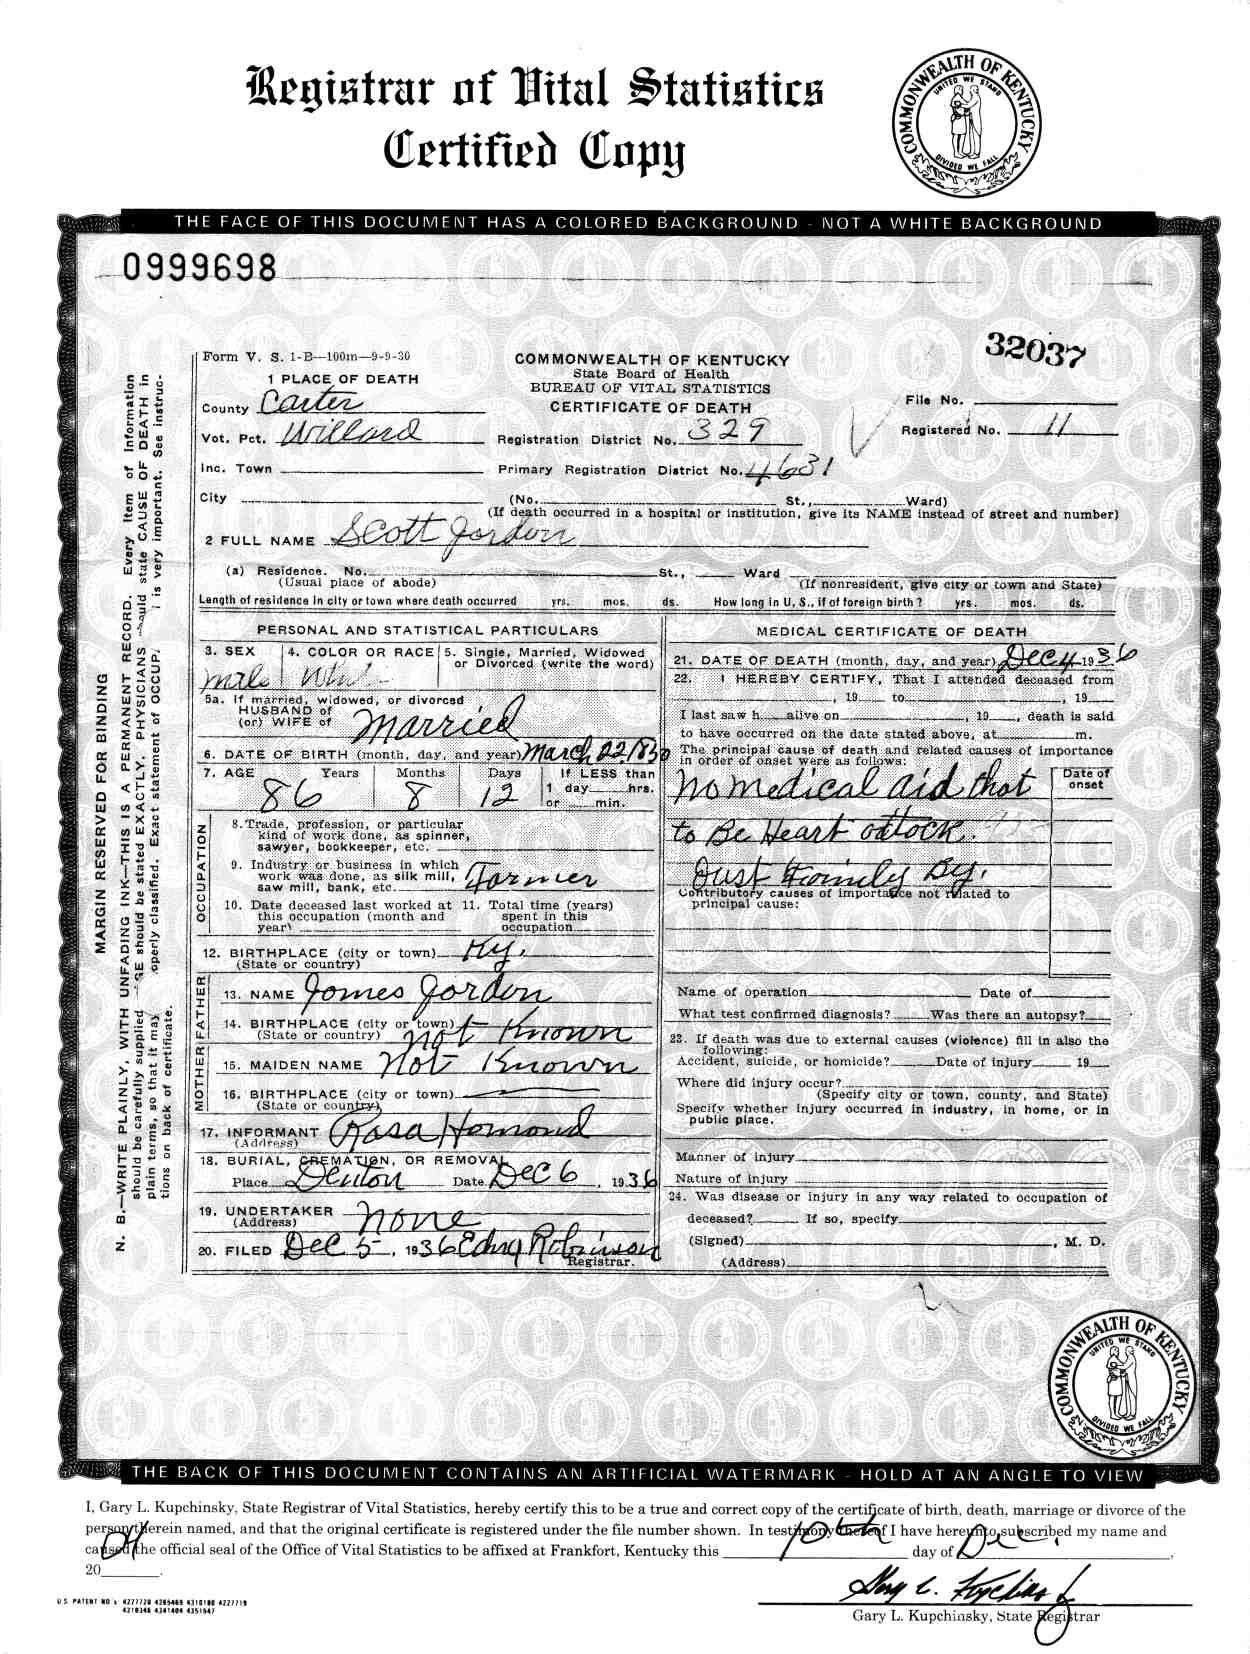 Registrar of Vital Statistics
Certified Copy
COMMONWEALTH OF KENTUCKY
UNITED WE STAND
DIVIDED WE FALL
THE FACE OF THIS DOCUMENT HAS A COLORED BACKGROUND - NOT A WHITE BACKGROUND
0999698
32037
Form V. S. 1-B—100m—9-9-30
COMMONWEALTH OF KENTUCKY
State Board of Health
BUREAU OF VITAL STATISTICS
CERTIFICATE OF DEATH
1 PLACE OF DEATH
County Carter
File No.
Vot. Pct. Willard
Registration District No. 329
Registered No. 11
Inc. Town
Primary Registration District No. 4631
City
(No. St., Ward)
(If death occurred in a hospital or institution, give its NAME instead of street and number)
2 FULL NAME Scott Jordon
(a) Residence. No. St., Ward
(Usual place of abode) (If nonresident, give city or town and State)
Length of residence in city or town where death occurred yrs. mos. ds. How long in U. S., if of foreign birth? yrs. mos. ds.
MARGIN RESERVED FOR BINDING
N. B.—WRITE PLAINLY, WITH UNFADING INK—THIS IS A PERMANENT RECORD. Every item of information
should be carefully supplied. AGE should be stated EXACTLY. PHYSICIANS should state CAUSE OF DEATH in
plain terms, so that it may operly classified. Exact statement of OCCUP. is very important. See instruc-
tions on back of certificate.
PERSONAL AND STATISTICAL PARTICULARS
3. SEX 4. COLOR OR RACE 5. Single, Married, Widowed
or Divorced (write the word)
male
5a. If married, widowed, or divorced
HUSBAND of
(or) WIFE of Married
6. DATE OF BIRTH (month, day, and year) March 22, 1850
7. AGE Years Months Days If LESS than
1 day hrs.
or min.
86 8 12
OCCUPATION
8. Trade, profession, or particular
kind of work done, as spinner,
sawyer, bookkeeper, etc.
9. Industry or business in which
work was done, as silk mill,
saw mill, bank, etc. Farmer
10. Date deceased last worked at
this occupation (month and
year)
11. Total time (years)
spent in this
occupation
12. BIRTHPLACE (city or town) Ky.
(State or country)
FATHER
13. NAME James Jordon
14. BIRTHPLACE (city or town)
(State or country) Not Known
MOTHER
15. MAIDEN NAME Not Known
16. BIRTHPLACE (city or town)
(State or country)
17. INFORMANT
(Address)
18. BURIAL, CREMATION, OR REMOVAL
Place Denton Date Dec 6, 1936
19. UNDERTAKER None
(Address)
20. FILED Dec 5, 1936 Robinson
Registrar.
MEDICAL CERTIFICATE OF DEATH
21. DATE OF DEATH (month, day, and year) Dec 4 1936
22. I HEREBY CERTIFY, That I attended deceased from
, 19 to , 19
I last saw h alive on , 19 , death is said
to have occurred on the date stated above, at m.
The principal cause of death and related causes of importance
in order of onset were as follows:
Date of
onset
No medical aid that
to Be Heart attack.
Just Family By.
Contributory causes of importance not related to
principal cause:
Name of operation Date of
What test confirmed diagnosis? Was there an autopsy?
23. If death was due to external causes (violence) fill in also the
following:
Accident, suicide, or homicide? Date of injury 19
Where did injury occur?
(Specify city or town, county, and State)
Specify whether injury occurred in industry, in home, or in
public place.
Manner of injury
Nature of injury
24. Was disease or injury in any way related to occupation of
deceased? If so, specify
(Signed) , M. D.
(Address)
COMMONWEALTH OF KENTUCKY
UNITED WE STAND
DIVIDED WE FALL
THE BACK OF THIS DOCUMENT CONTAINS AN ARTIFICIAL WATERMARK - HOLD AT AN ANGLE TO VIEW
I, Gary L. Kupchinsky, State Registrar of Vital Statistics, hereby certify this to be a true and correct copy of the certificate of birth, death, marriage or divorce of the
person therein named, and that the original certificate is registered under the file number shown. In testimony thereof I have hereunto subscribed my name and
caused the official seal of the Office of Vital Statistics to be affixed at Frankfort, Kentucky this 10th day of Dec.,
20 04.
U.S. PATENT NO's 4277720 4265469 4310180 4227719
4210346 4341404 4351547
Gary L. Kupchinsky, State Registrar